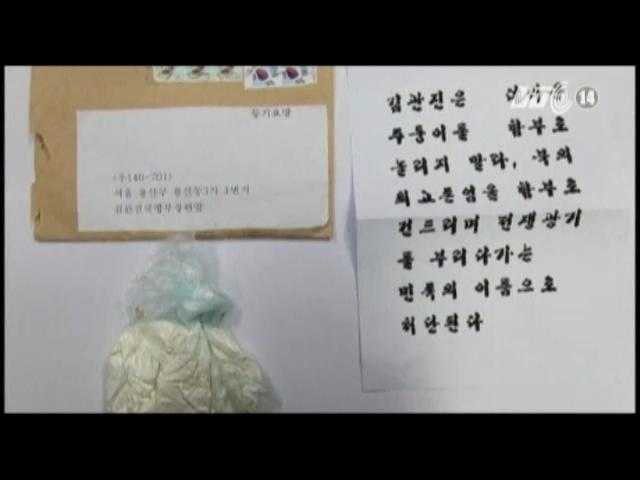 등기요망
(우140-701)
서울 용산구 용산동3가 1번지
김관진국방부장관앞
VTC 14
김관진은
주둥이를 함부로
놀리지 말라, 북의
최고존엄을 함부로
건드리며 전쟁광기
를 부리다가는
민족의 이름으로
처단된다